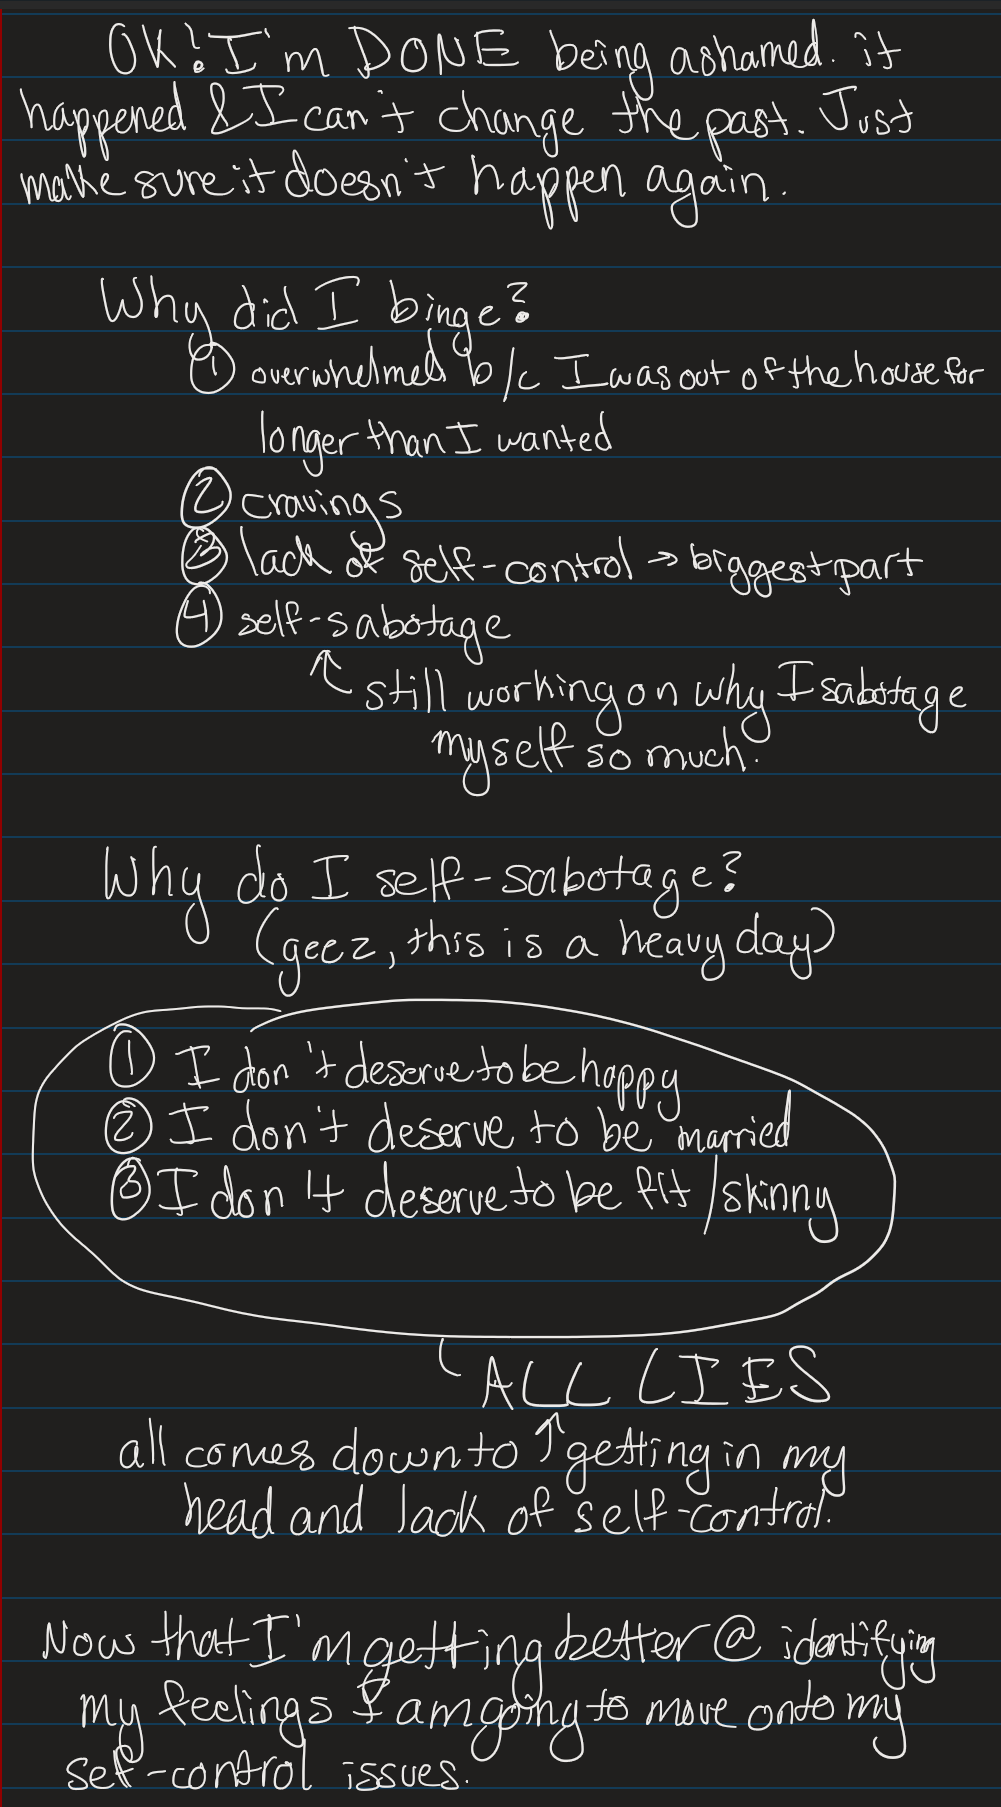 OK! I'm DONE being ashamed. it
happened & I can't change the past. Just
make sure it doesn't happen again.
Why did I binge?
① overwhelmed b/c I was out of the house for
longer than I wanted
② cravings
③ lack of self-control → biggest part
④ self-sabotage
↑ still working on why I sabotage
myself so much.
Why do I self-sabotage?
(geez, this is a heavy day)
① I don't deserve to be happy
② I don't deserve to be married
③ I don't deserve to be fit/skinny
ALL LIES
all comes down to ↑ getting in my
head and lack of self-control.
Now that I'm getting better @ identifying
my feelings I am going to move onto my
self-control issues.